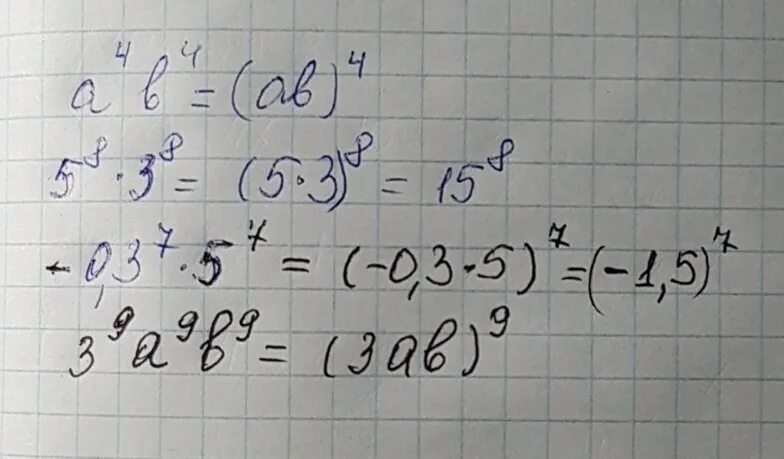 a⁴b⁴ = (ab)⁴
5⁸ · 3⁸ = (5·3)⁸ = 15⁸
-0,3⁷ · 5⁷ = (-0,3·5)⁷ = (-1,5)⁷
3⁹a⁹b⁹ = (3ab)⁹